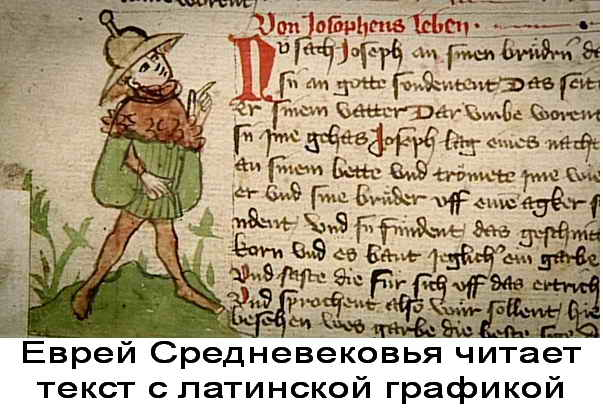 Von Josophens leben ·
NU sach Joseph an sinen brüdern da
sü an gotte sondentent Das seit
er sinem vatter Dar vmbe worent
sü ime gehas Joseph lag eines nacht
an sinem bette vnd trömete ime wie
er vnd sine brüder vff eine agker s
ndent / vnd sü fundent das geschnitt
korn vnd es bant jeglich ein garbe
Vnd saste die für sich vff das ertrich
Vnd sprochent also wür sollent hie
besehen wes garbe die beste sige
Еврей Средневековья читает
текст с латинской графикой